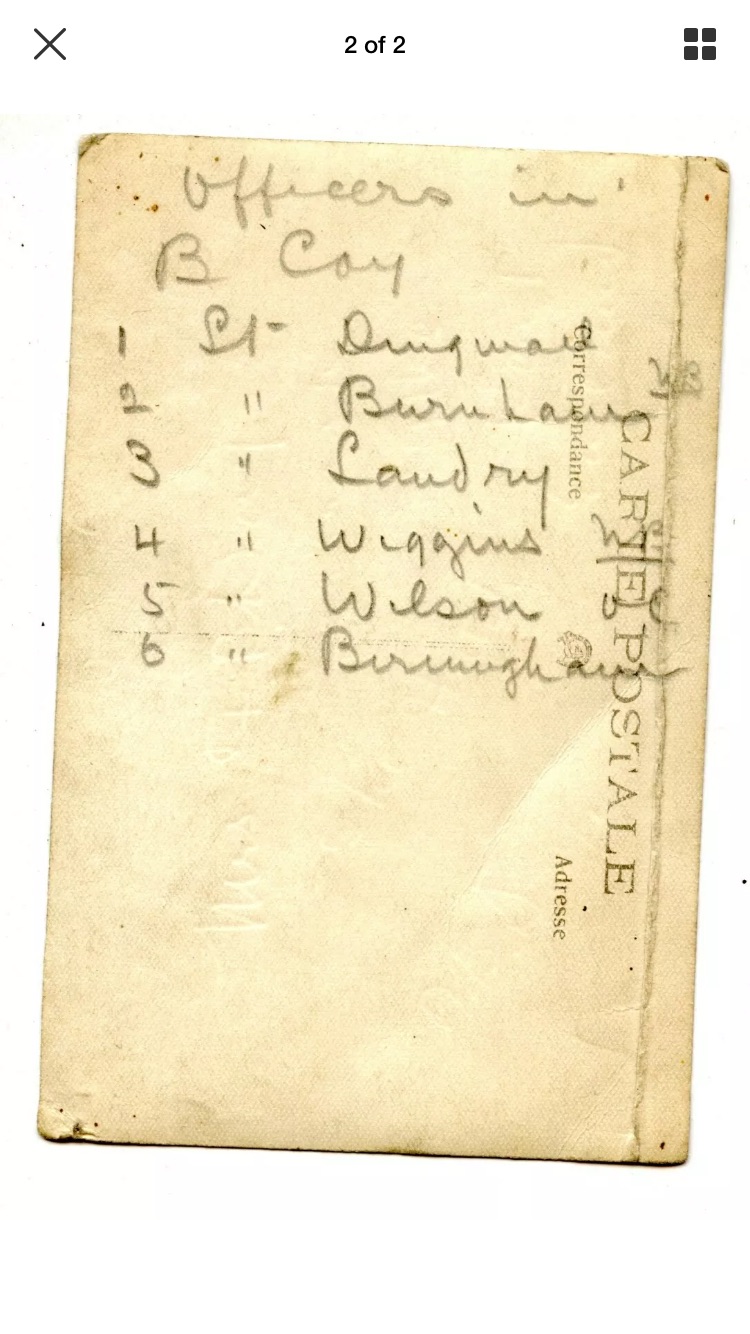 2 of 2
Officers in
B Coy
1 Lt Dingman
2 " Burnham
3 " Landry
4 " Wiggins
5 " Wilson
6 " Birmingham
Correspondance
CARTE POSTALE
Adresse